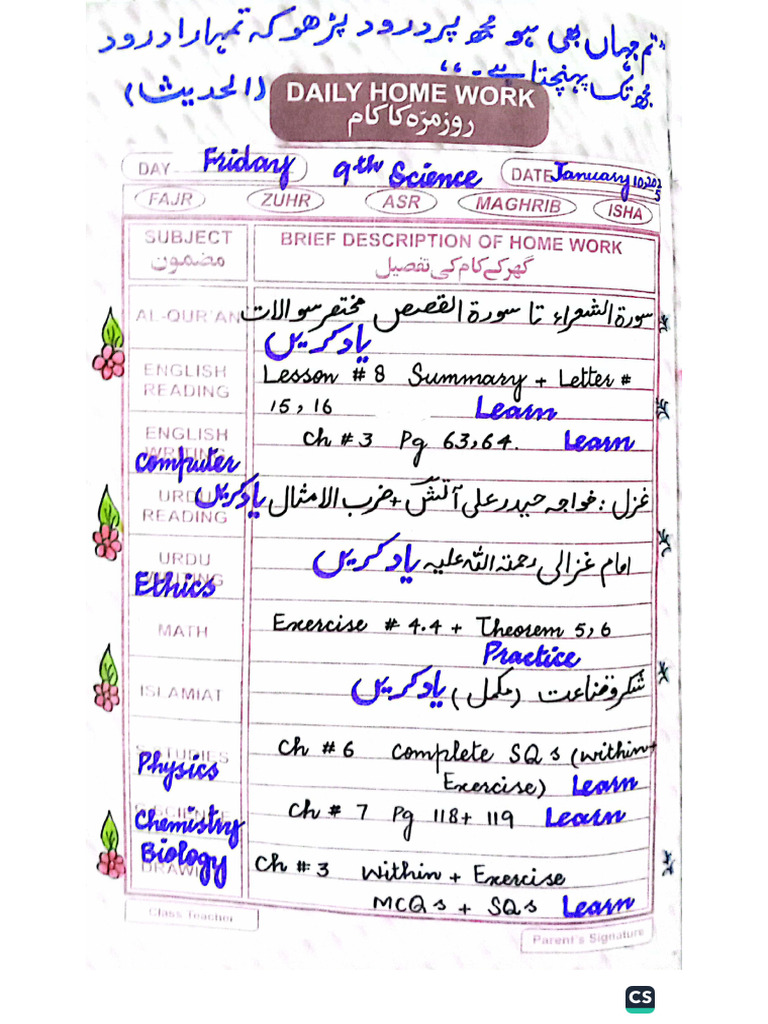 "تم جہاں بھی ہو مجھ پر درود پڑھو کہ تمہارا درود
مجھ تک پہنچتا ہے۔" (الحدیث)
DAILY HOME WORK
روزمرّہ کا کام
DAY Friday 9th Science DATE January 10, 2025
FAJR ZUHR ASR MAGHRIB ISHA
SUBJECT BRIEF DESCRIPTION OF HOME WORK
مضمون گھر کے کام کی تفصیل
AL-QUR'AN سورۃ الشعراء تا سورۃ القصص مختصر سوالات
یاد کریں
ENGLISH READING Lesson # 8 Summary + Letter #
15, 16 Learn
ENGLISH WRITING Computer Ch # 3 Pg 63,64. Learn
URDU READING غزل: خواجہ حیدر علی آتش + ضرب الامثال یاد کریں
URDU WRITING Ethics امام غزالی رحمتہ اللہ علیہ یاد کریں
MATH Exercise # 4.4 + Theorem 5,6
Practice
ISLAMIAT شکر و قناعت (مکمل) یاد کریں
S.STUDIES Physics Ch # 6 Complete SQs (within +
Exercise) Learn
S.SCIENCE Chemistry Ch # 7 Pg 118+ 119 Learn
DRAWING Biology Ch # 3 Within + Exercise
MCQs + SQs Learn
Class Teacher
Parent's Signature
CS